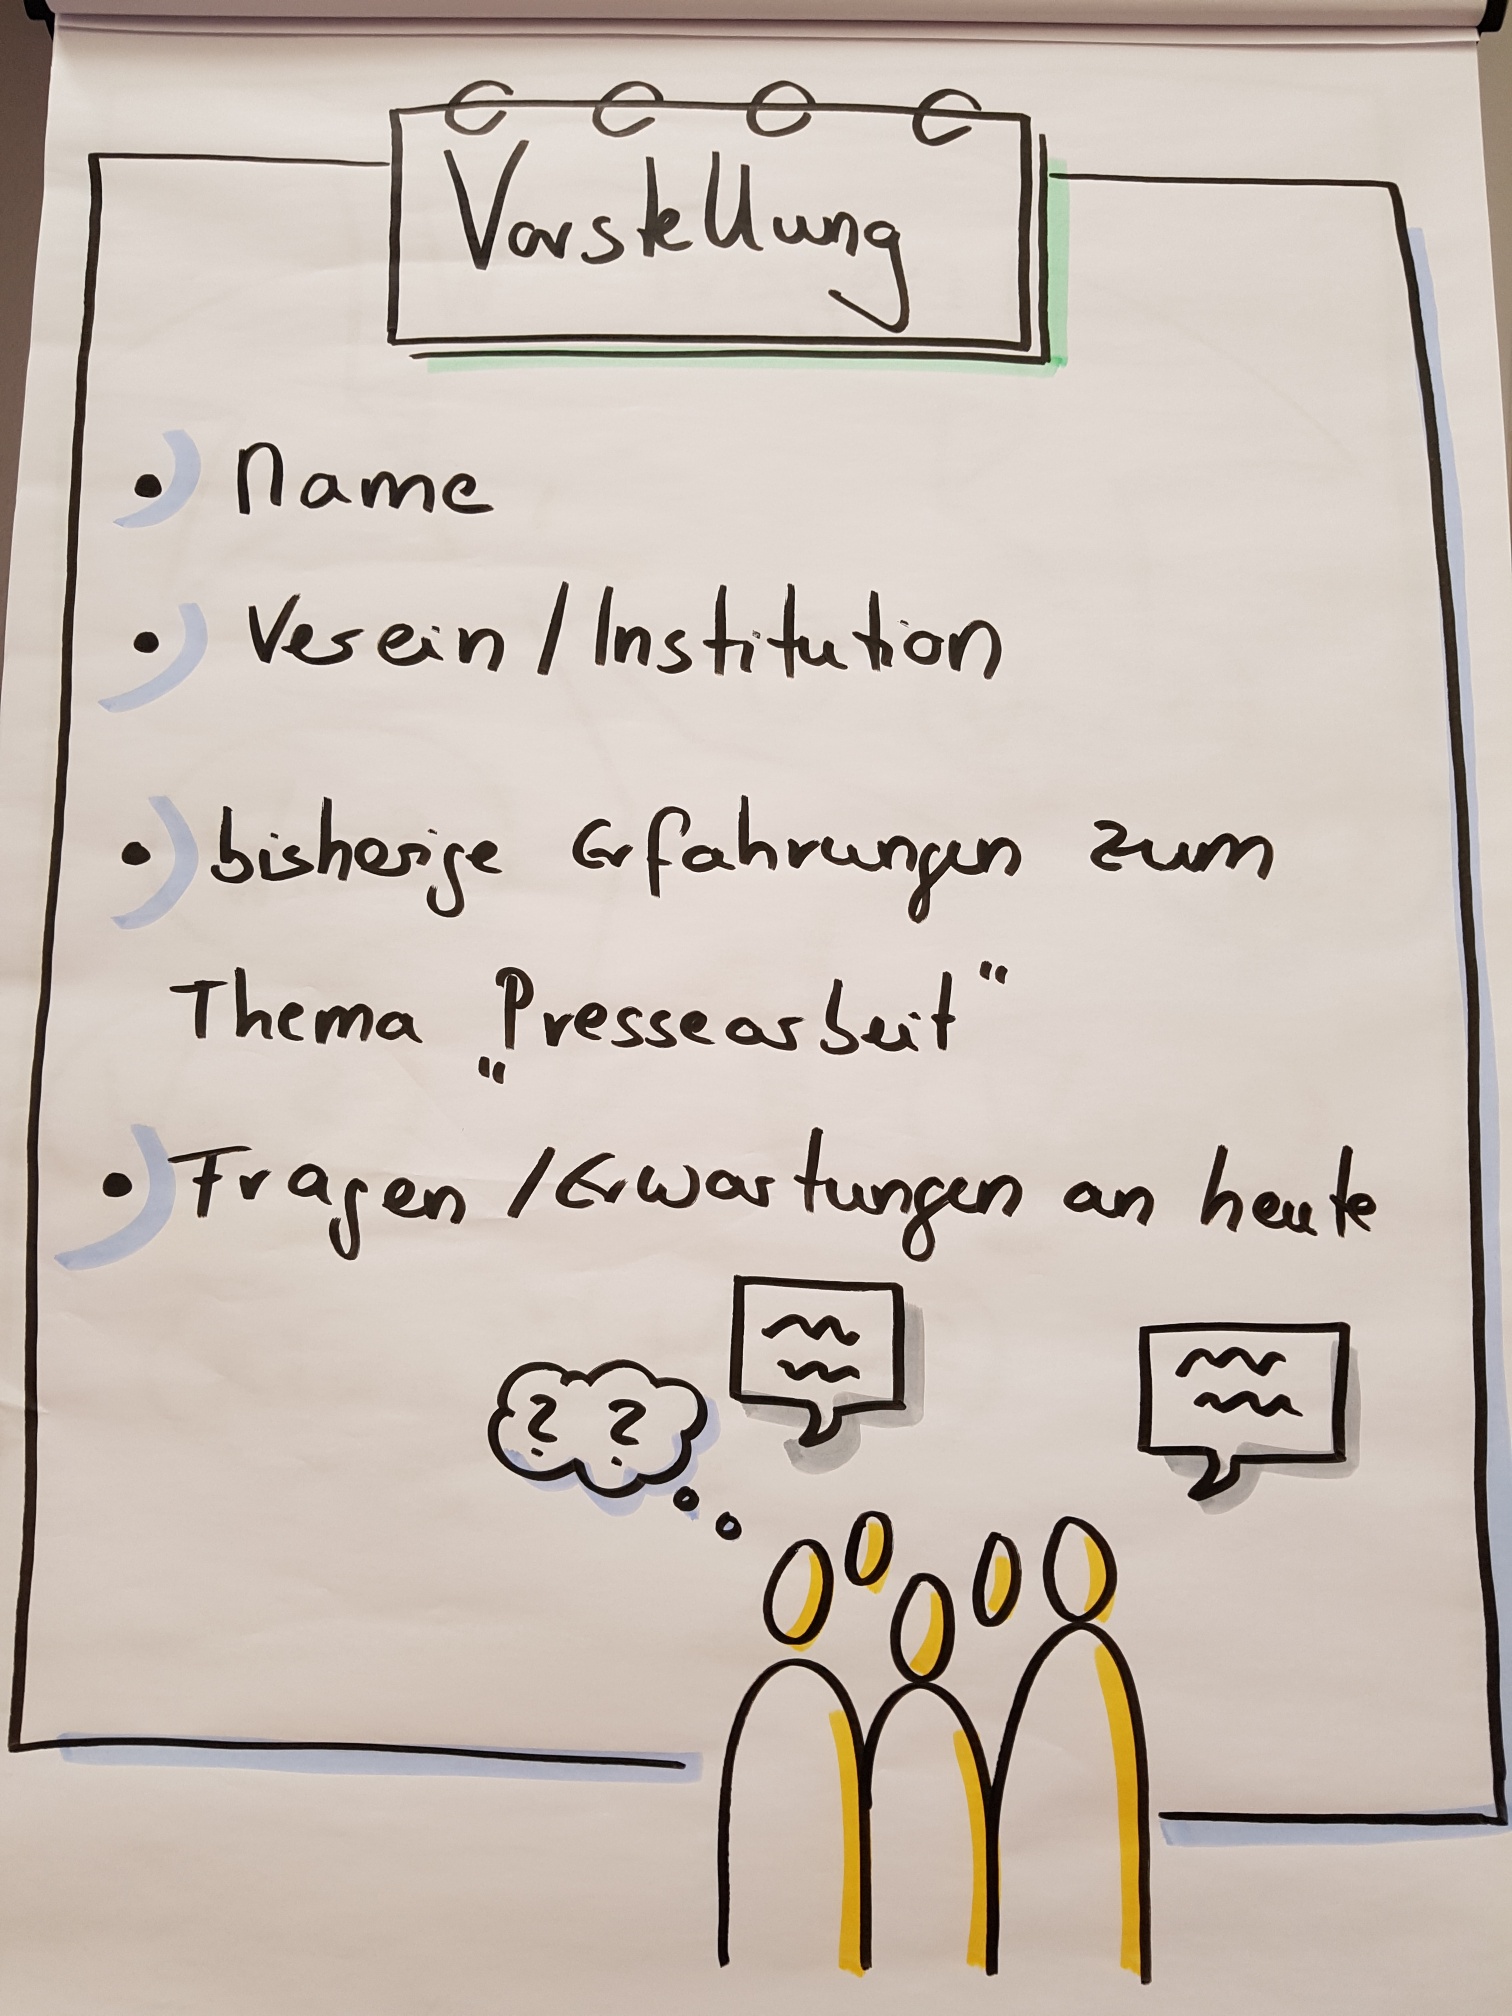 Vorstellung
• Name
• Verein / Institution
• bisherige Erfahrungen zum
Thema „Pressearbeit“
• Fragen / Erwartungen an heute
? ?